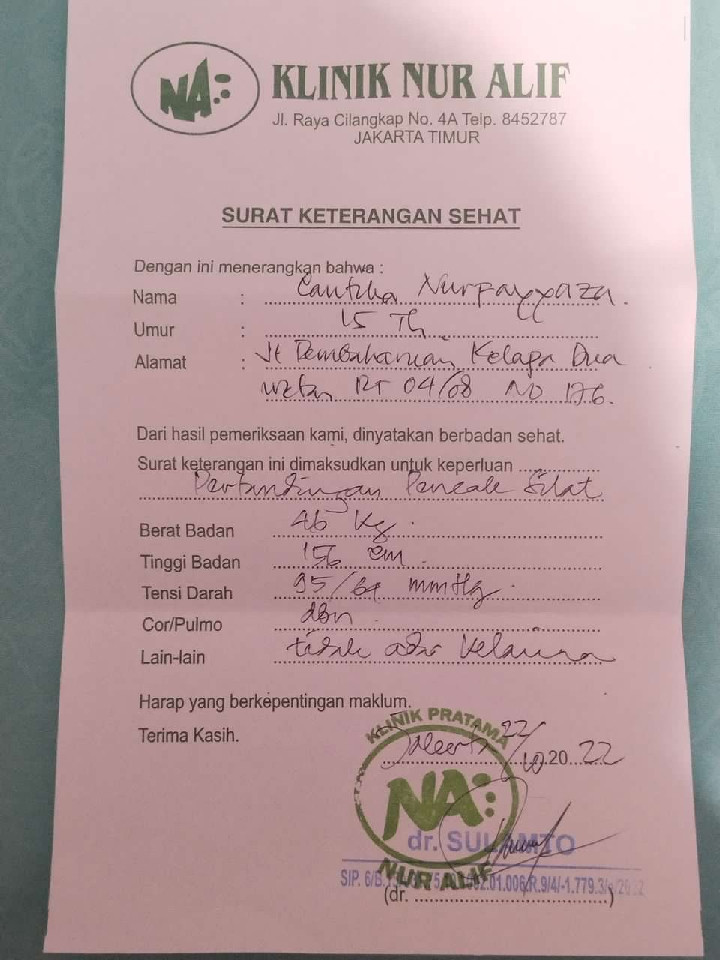 NA:
KLINIK NUR ALIF
Jl. Raya Cilangkap No. 4A Telp. 8452787
JAKARTA TIMUR
SURAT KETERANGAN SEHAT
Dengan ini menerangkan bahwa :
Nama :
Umur : 15 Th
Alamat : Jl Pembaharuan Kelapa Dua
Wetan RT 04/08 No
Dari hasil pemeriksaan kami, dinyatakan berbadan sehat.
Surat keterangan ini dimaksudkan untuk keperluan
Pertandingan Pencak Silat
Berat Badan 46 Kg
Tinggi Badan 156 cm
Tensi Darah mmHg
Cor/Pulmo dbn
Lain-lain tidak ada kelainan
Harap yang berkepentingan maklum.
Terima Kasih.
KLINIK PRATAMA
22/10 20 22
NA:
dr. SULAMTO
NUR ALIF
(dr. )